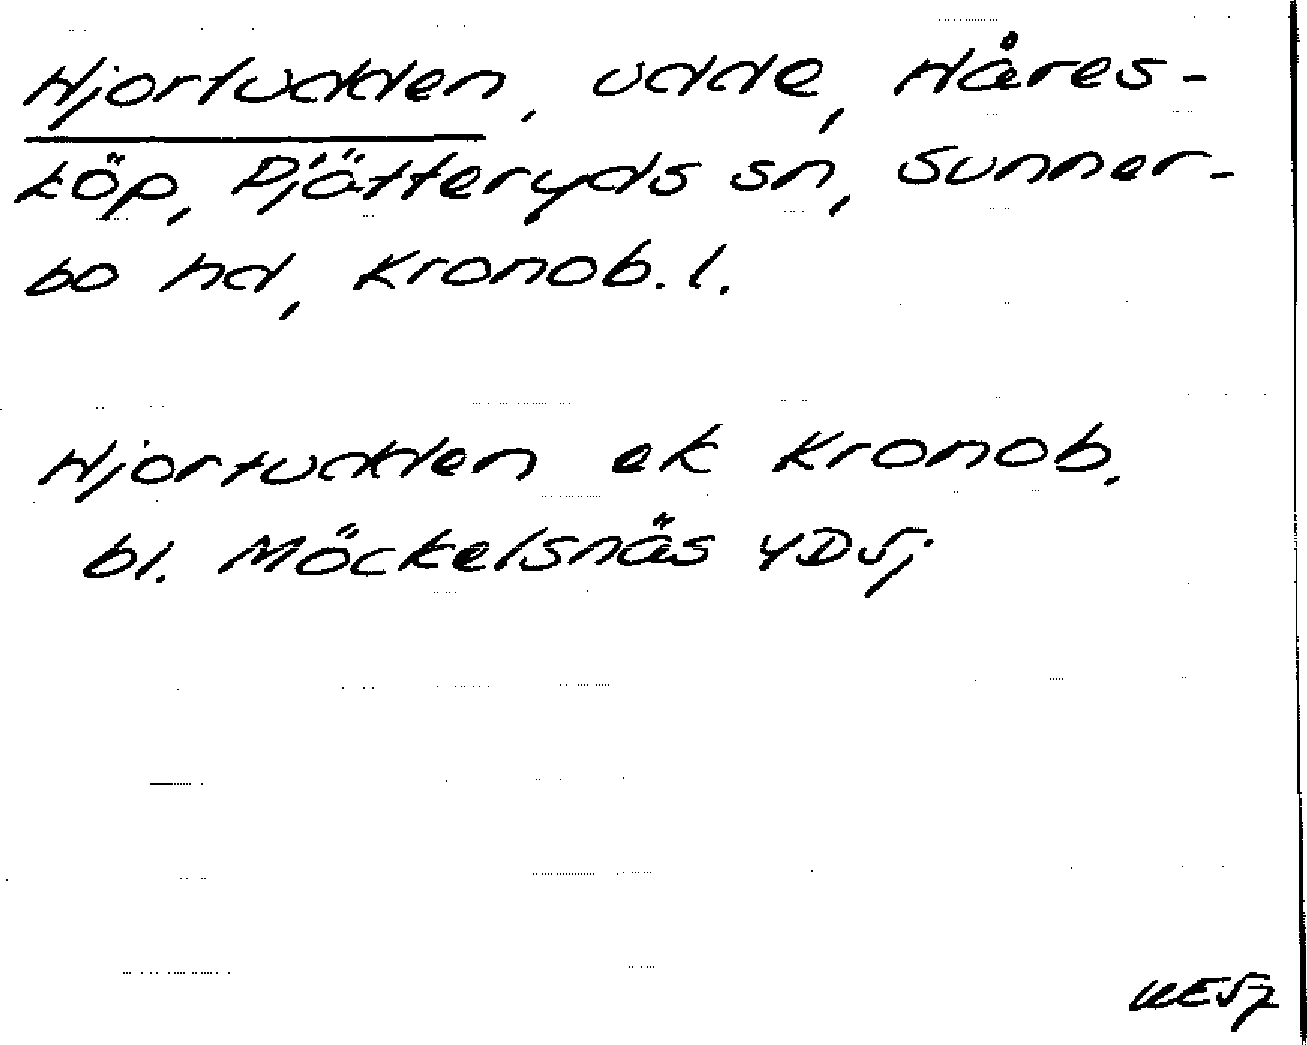 Hjortudden, udde, Håres-
köp, Pjätteryds sn, Sunner-
bo hd, Kronob. l.
Hjortudden ek Kronob.
bl. Möckelsnäs 4D5j